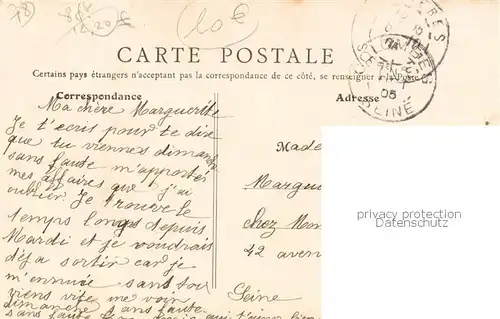 10€
CARTE POSTALE
Certains pays étrangers n'acceptant pas la correspondance de ce côté, se renseigner à la Poste
Correspondance
Adresse
Ma chère Marguerite
Je t'écris pour te dire
que tu viennes dimanche
sans faute m'apporter
mes affaires que j'ai
oublier. Je trouve le
temps long depuis
Mardi et je voudrais
déja sortir car je
m'ennuie sans toi
viens vite me voir
dimanche sans faute.
sans faute
COLOMBES
05
SEINE
Made
Margue
chez Mon
42 aven
Seine
privacy protection
Datenschutz